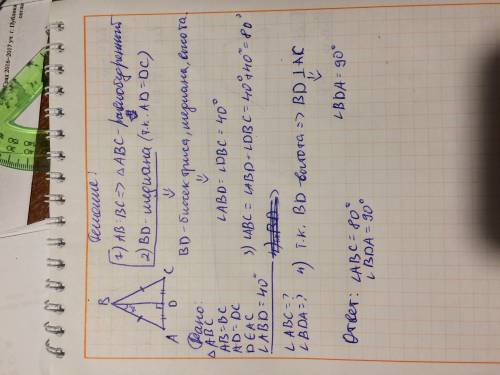 Решение:
1) AB = BC => △ABC - равнобедренный
2) BD - медиана (т.к. AD = DC)
BD - биссектриса, медиана, высота.
∠ABD = ∠DBC = 40°
3) ∠ABC = ∠ABD + ∠DBC = 40° + 40° = 80°
4) т.к. BD - высота => BD ⊥ AC
∠BDA = 90°
B
A
D
C
Дано:
△ABC
AB = BC
AD = DC
D ∈ AC
∠ABD = 40°
∠ABC = ?
∠BDA = ?
Ответ: ∠ABC = 80°
∠BDA = 90°